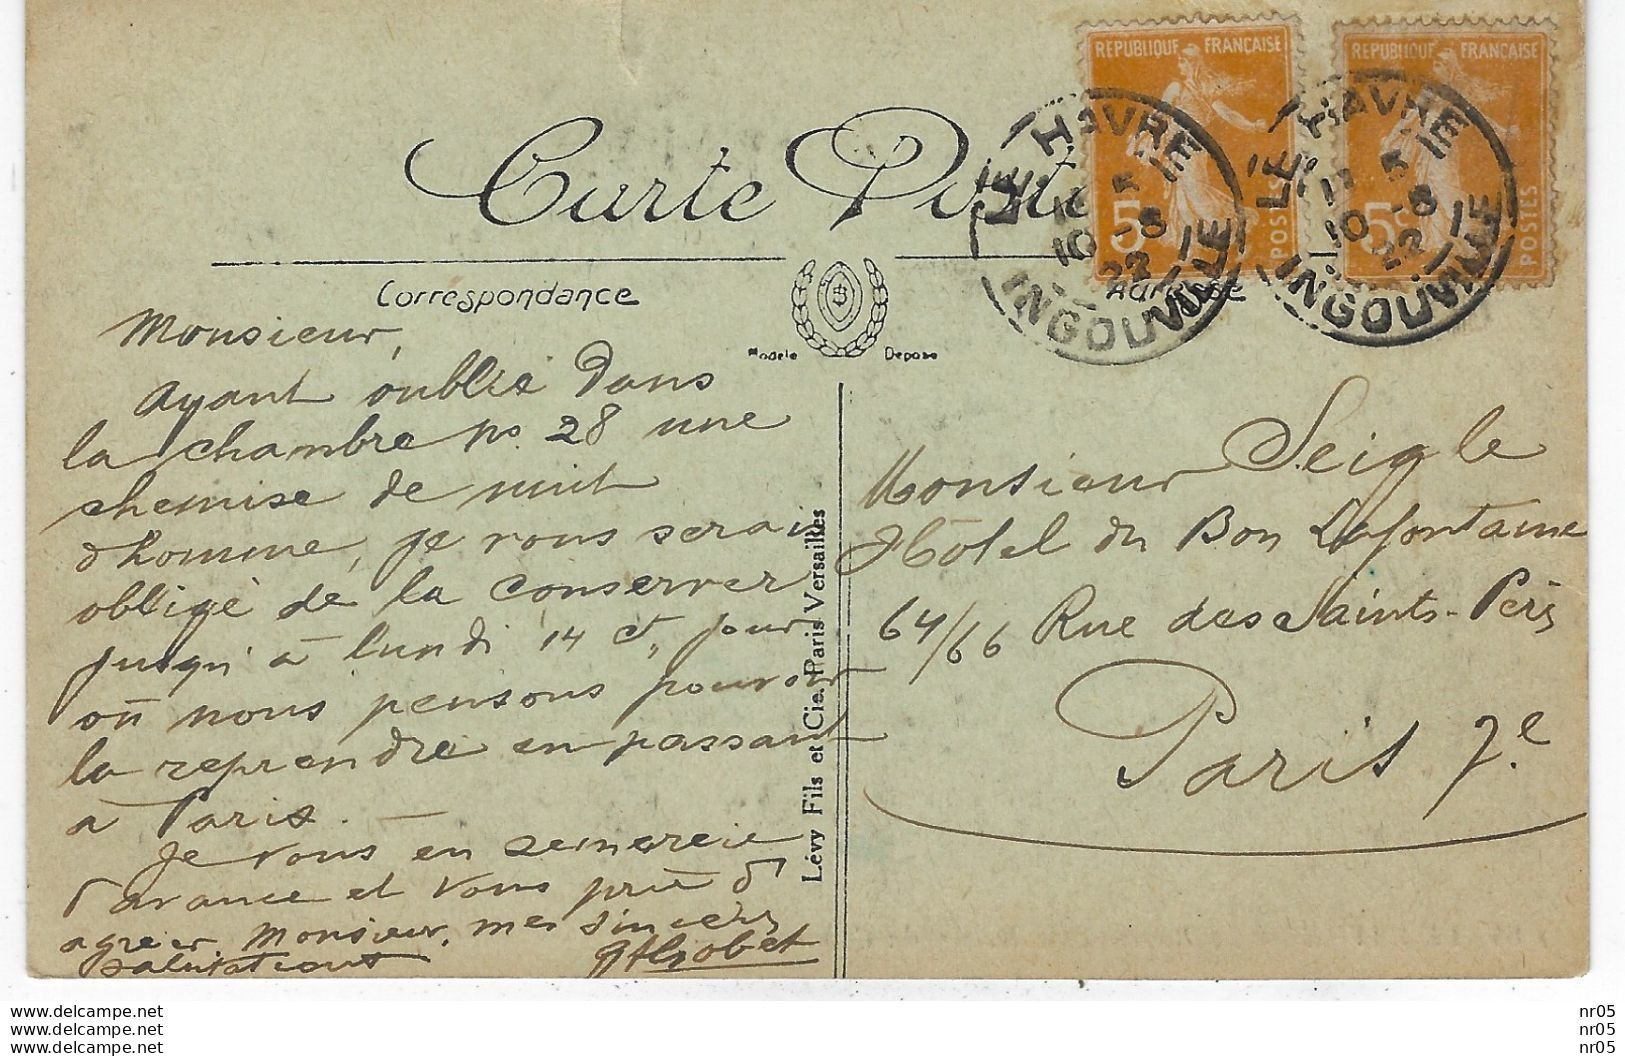 REPUBLIQUE FRANCAISE
5c
POSTES
REPUBLIQUE FRANCAISE
5c
POSTES
LE HAVRE
10 -8
22
INGOUVILLE
LE HAVRE
10 -8
22
INGOUVILLE
Carte Postale
Correspondance
Adresse
Modèle Déposé
Monsieur,
Ayant oublié dans
la chambre no. 28 une
chemise de nuit
d'homme, je vous serais
obligé de la conserver
jusqu'à lundi 14 ct, jour
où nous pensons pouvoir
la reprendre en passant
à Paris.
Je vous en remercie
d'avance et vous prie d'
agréer, Monsieur, mes sincères
salutations
Lévy Fils et Cie. Paris Versailles
Monsieur Seigle
Hôtel du Bon Lafontaine
64/66 Rue des Saints-Pères
Paris 7e
www.delcampe.net
www.delcampe.net
www.delcampe.net
nr05
nr05
nr05